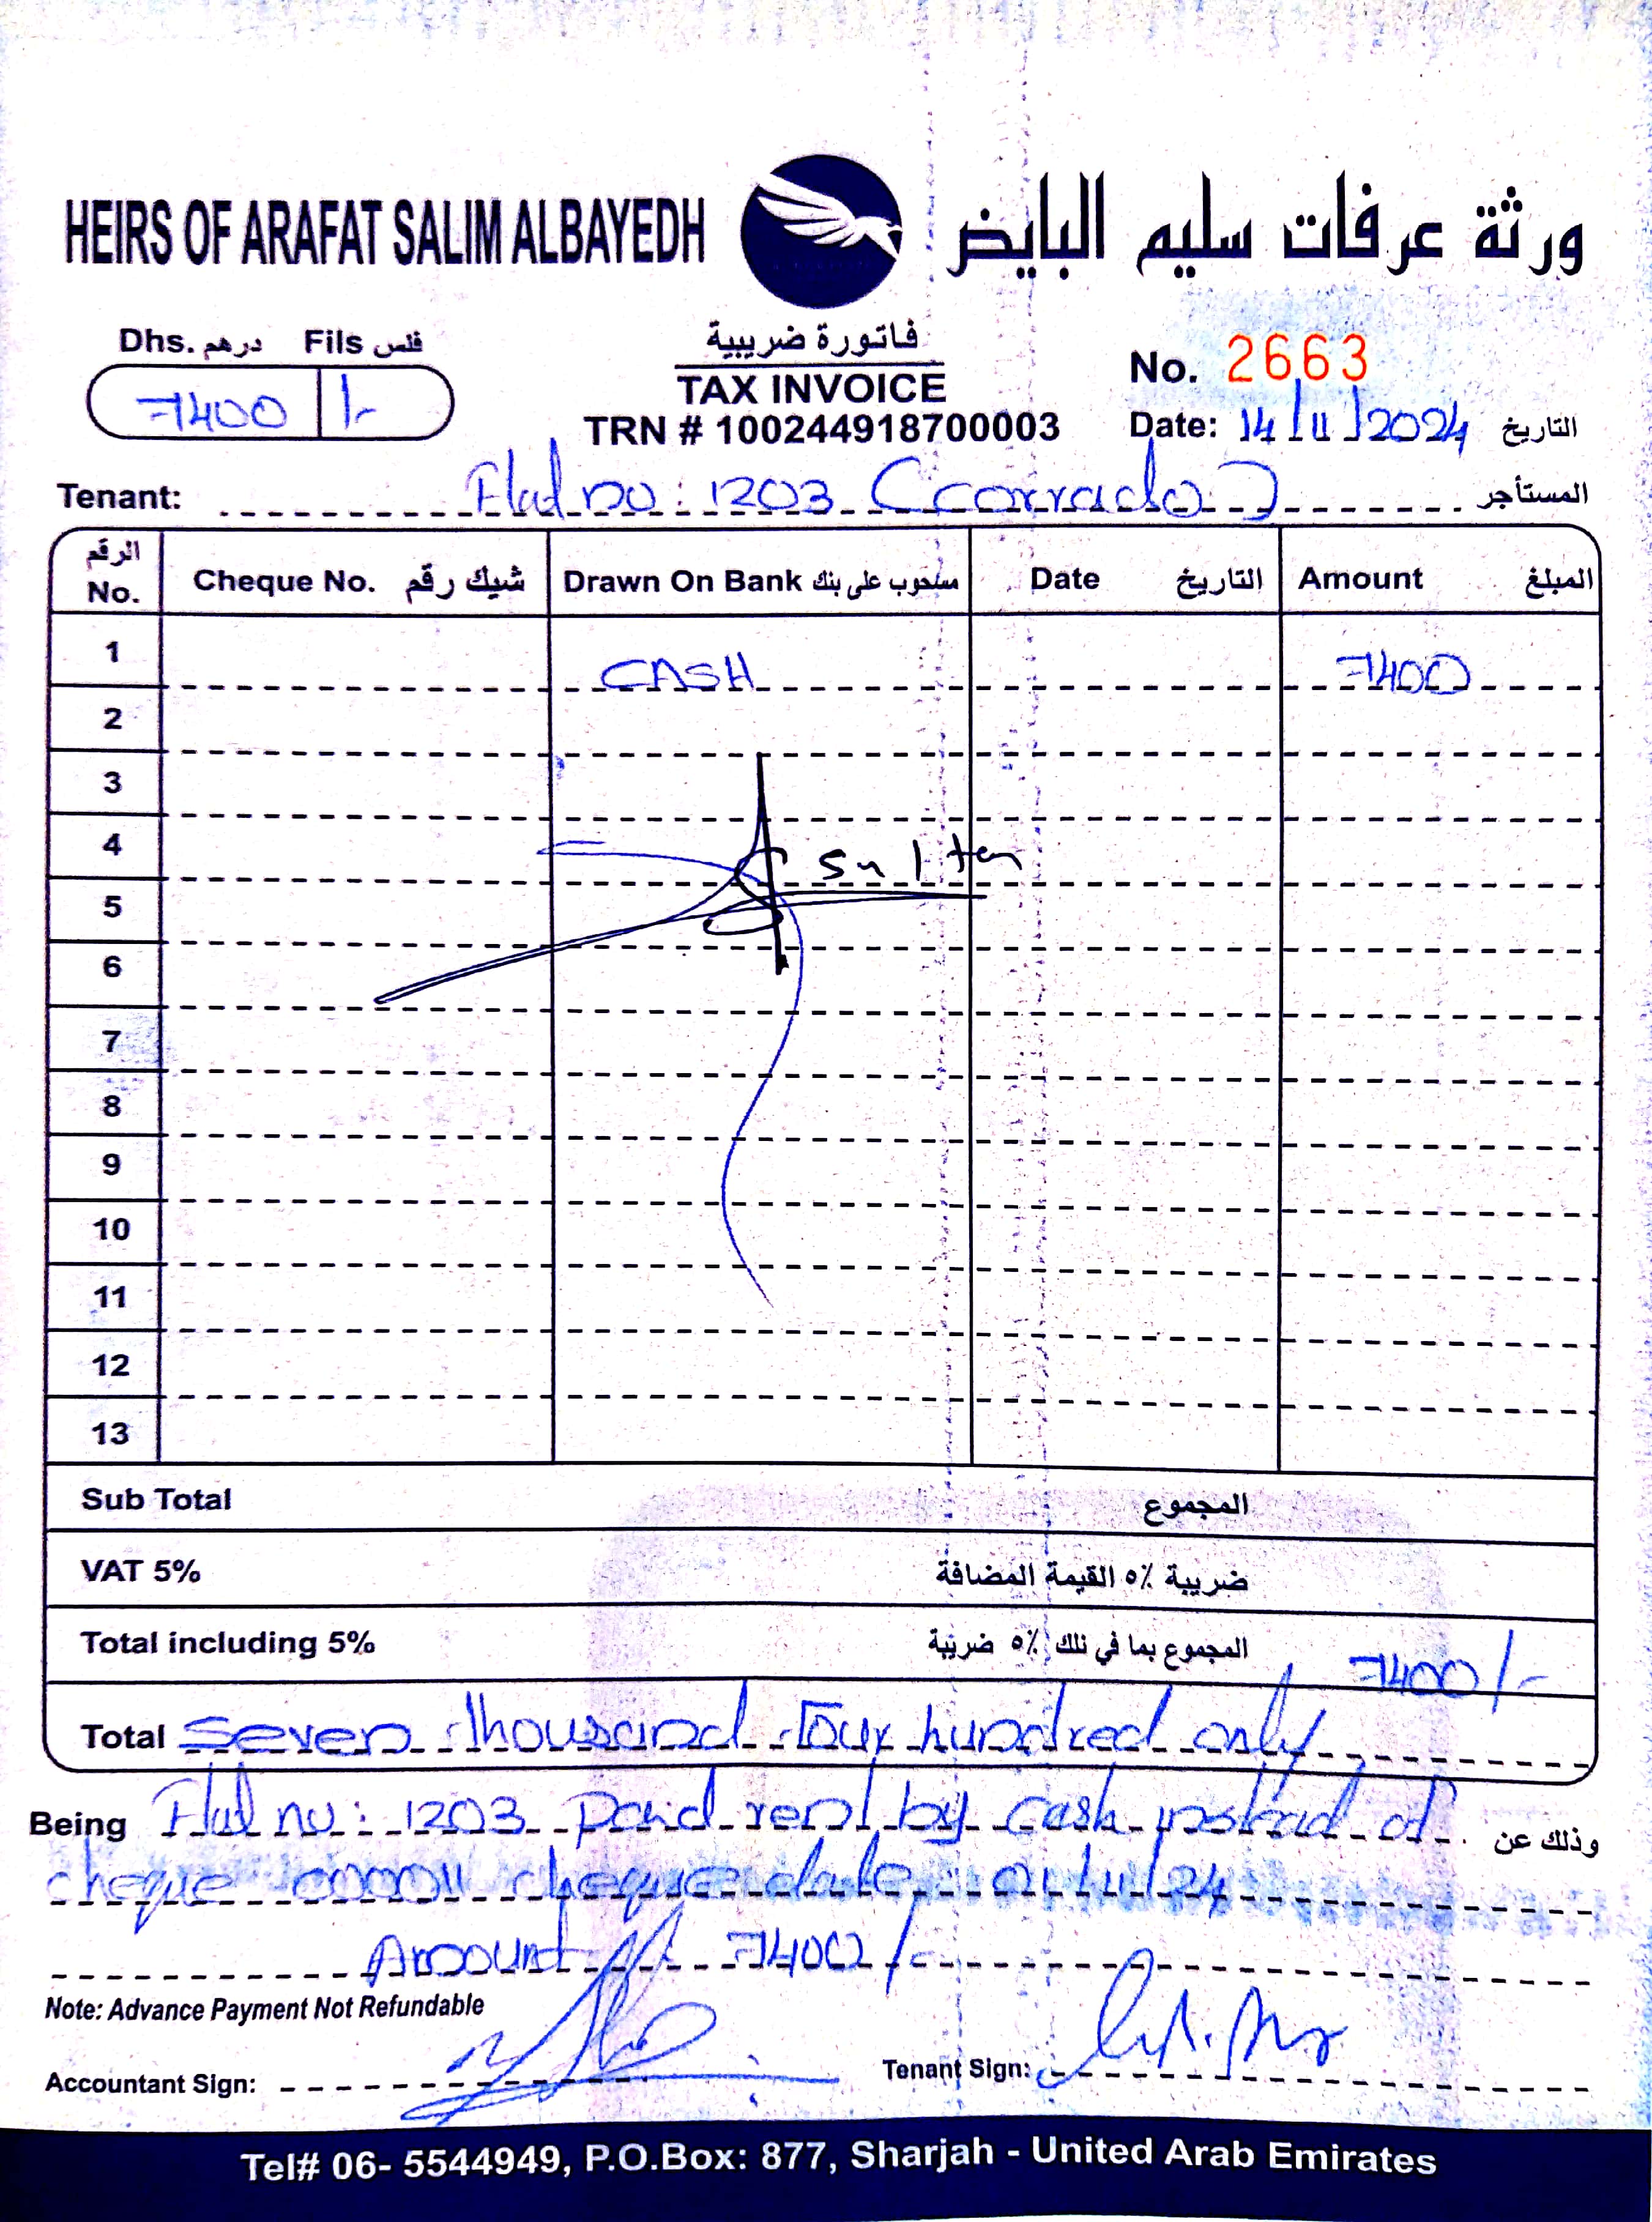 HEIRS OF ARAFAT SALIM ALBAYEDH ورثة عرفات سليم البايض
Dhs. درهم Fils فلس
7400 /-
فاتورة ضريبية
TAX INVOICE
TRN # 100244918700003
No. 2663
Date: 14/11/2024 التاريخ
Tenant: Flat no: 1203 (corrado) المستأجر
الرقم No. Cheque No. شيك رقم Drawn On Bank مسحوب على بنك Date التاريخ Amount المبلغ
1 CASH 7400
2
3
4 Sultan
5
6
7
8
9
10
11
12
13
Sub Total المجموع
VAT 5% ضريبة ٥٪ القيمة المضافة
Total including 5% المجموع بما في ذلك ٥٪ ضريبة 7400/-
Total Seven Thousand Four hundred only
Being Flat no: 1203 paid rent by cash instead of وذلك عن
cheque 000011 cheque date: 01/11/24
Amount 7400/-
Note: Advance Payment Not Refundable
Accountant Sign: Tenant Sign:
Tel# 06- 5544949, P.O.Box: 877, Sharjah - United Arab Emirates